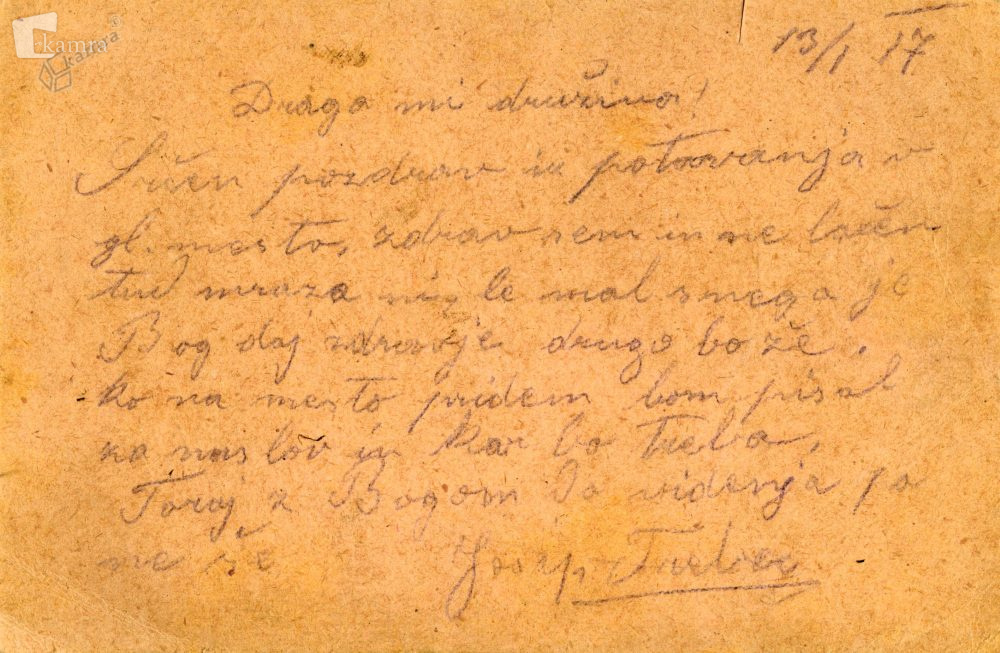 kamra
kamra
13/1 17
Draga mi družina!
Srčen pozdrav iz potovanja v
gl. mesto, zdrav sem in ne lačen
tud mraza ni, le mal snega je
Bog daj zdravje drugo bo že.
ko na mesto pridem bom písal
za naslov in kar bo treba,
Toraj z Bogom Do videnja
Josip